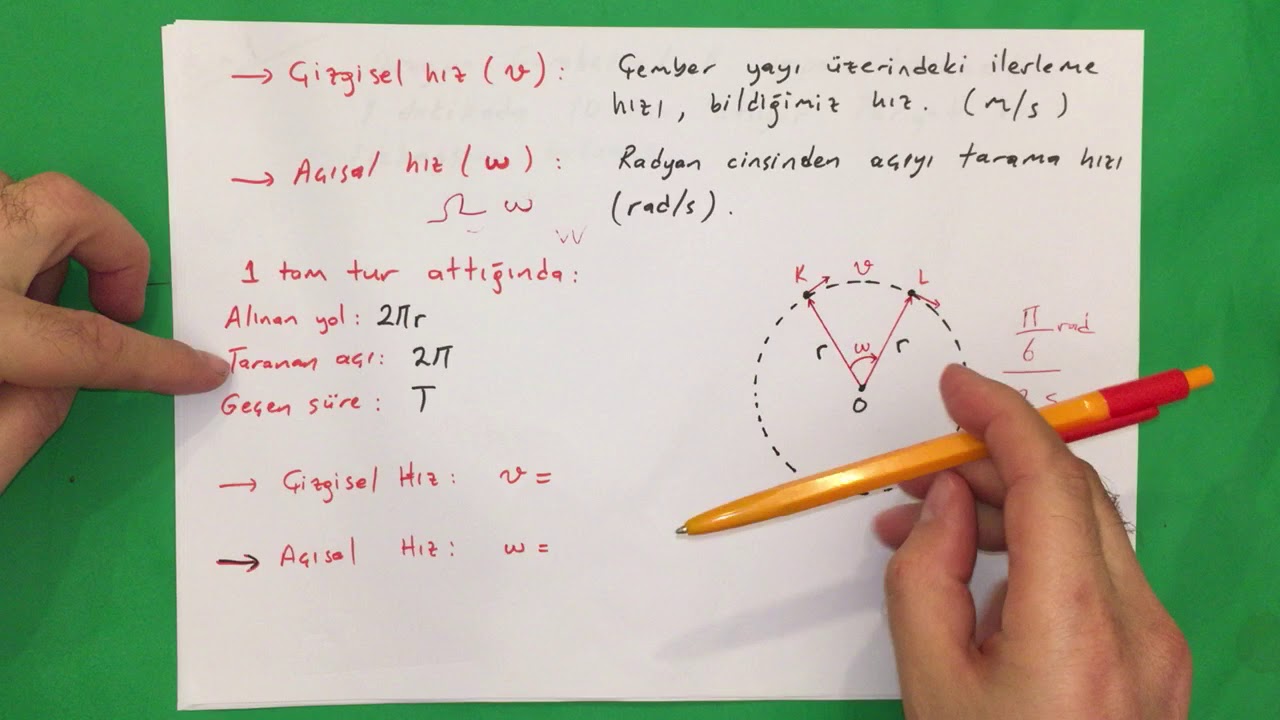 → Çizgisel hız (v) : Çember yayı üzerindeki ilerleme
hızı, bildiğimiz hız. (m/s)
→ Açısal hız (ω) : Radyan cinsinden açıyı tarama hızı
(rad/s).
Ω ω
VV
1 tam tur attığında:
Alınan yol: 2πr
Taranan açı: 2π
Geçen süre: T
K v L
r ω r
O
π/6 rad
s
→ Çizgisel Hız: v =
→ Açısal Hız: ω =